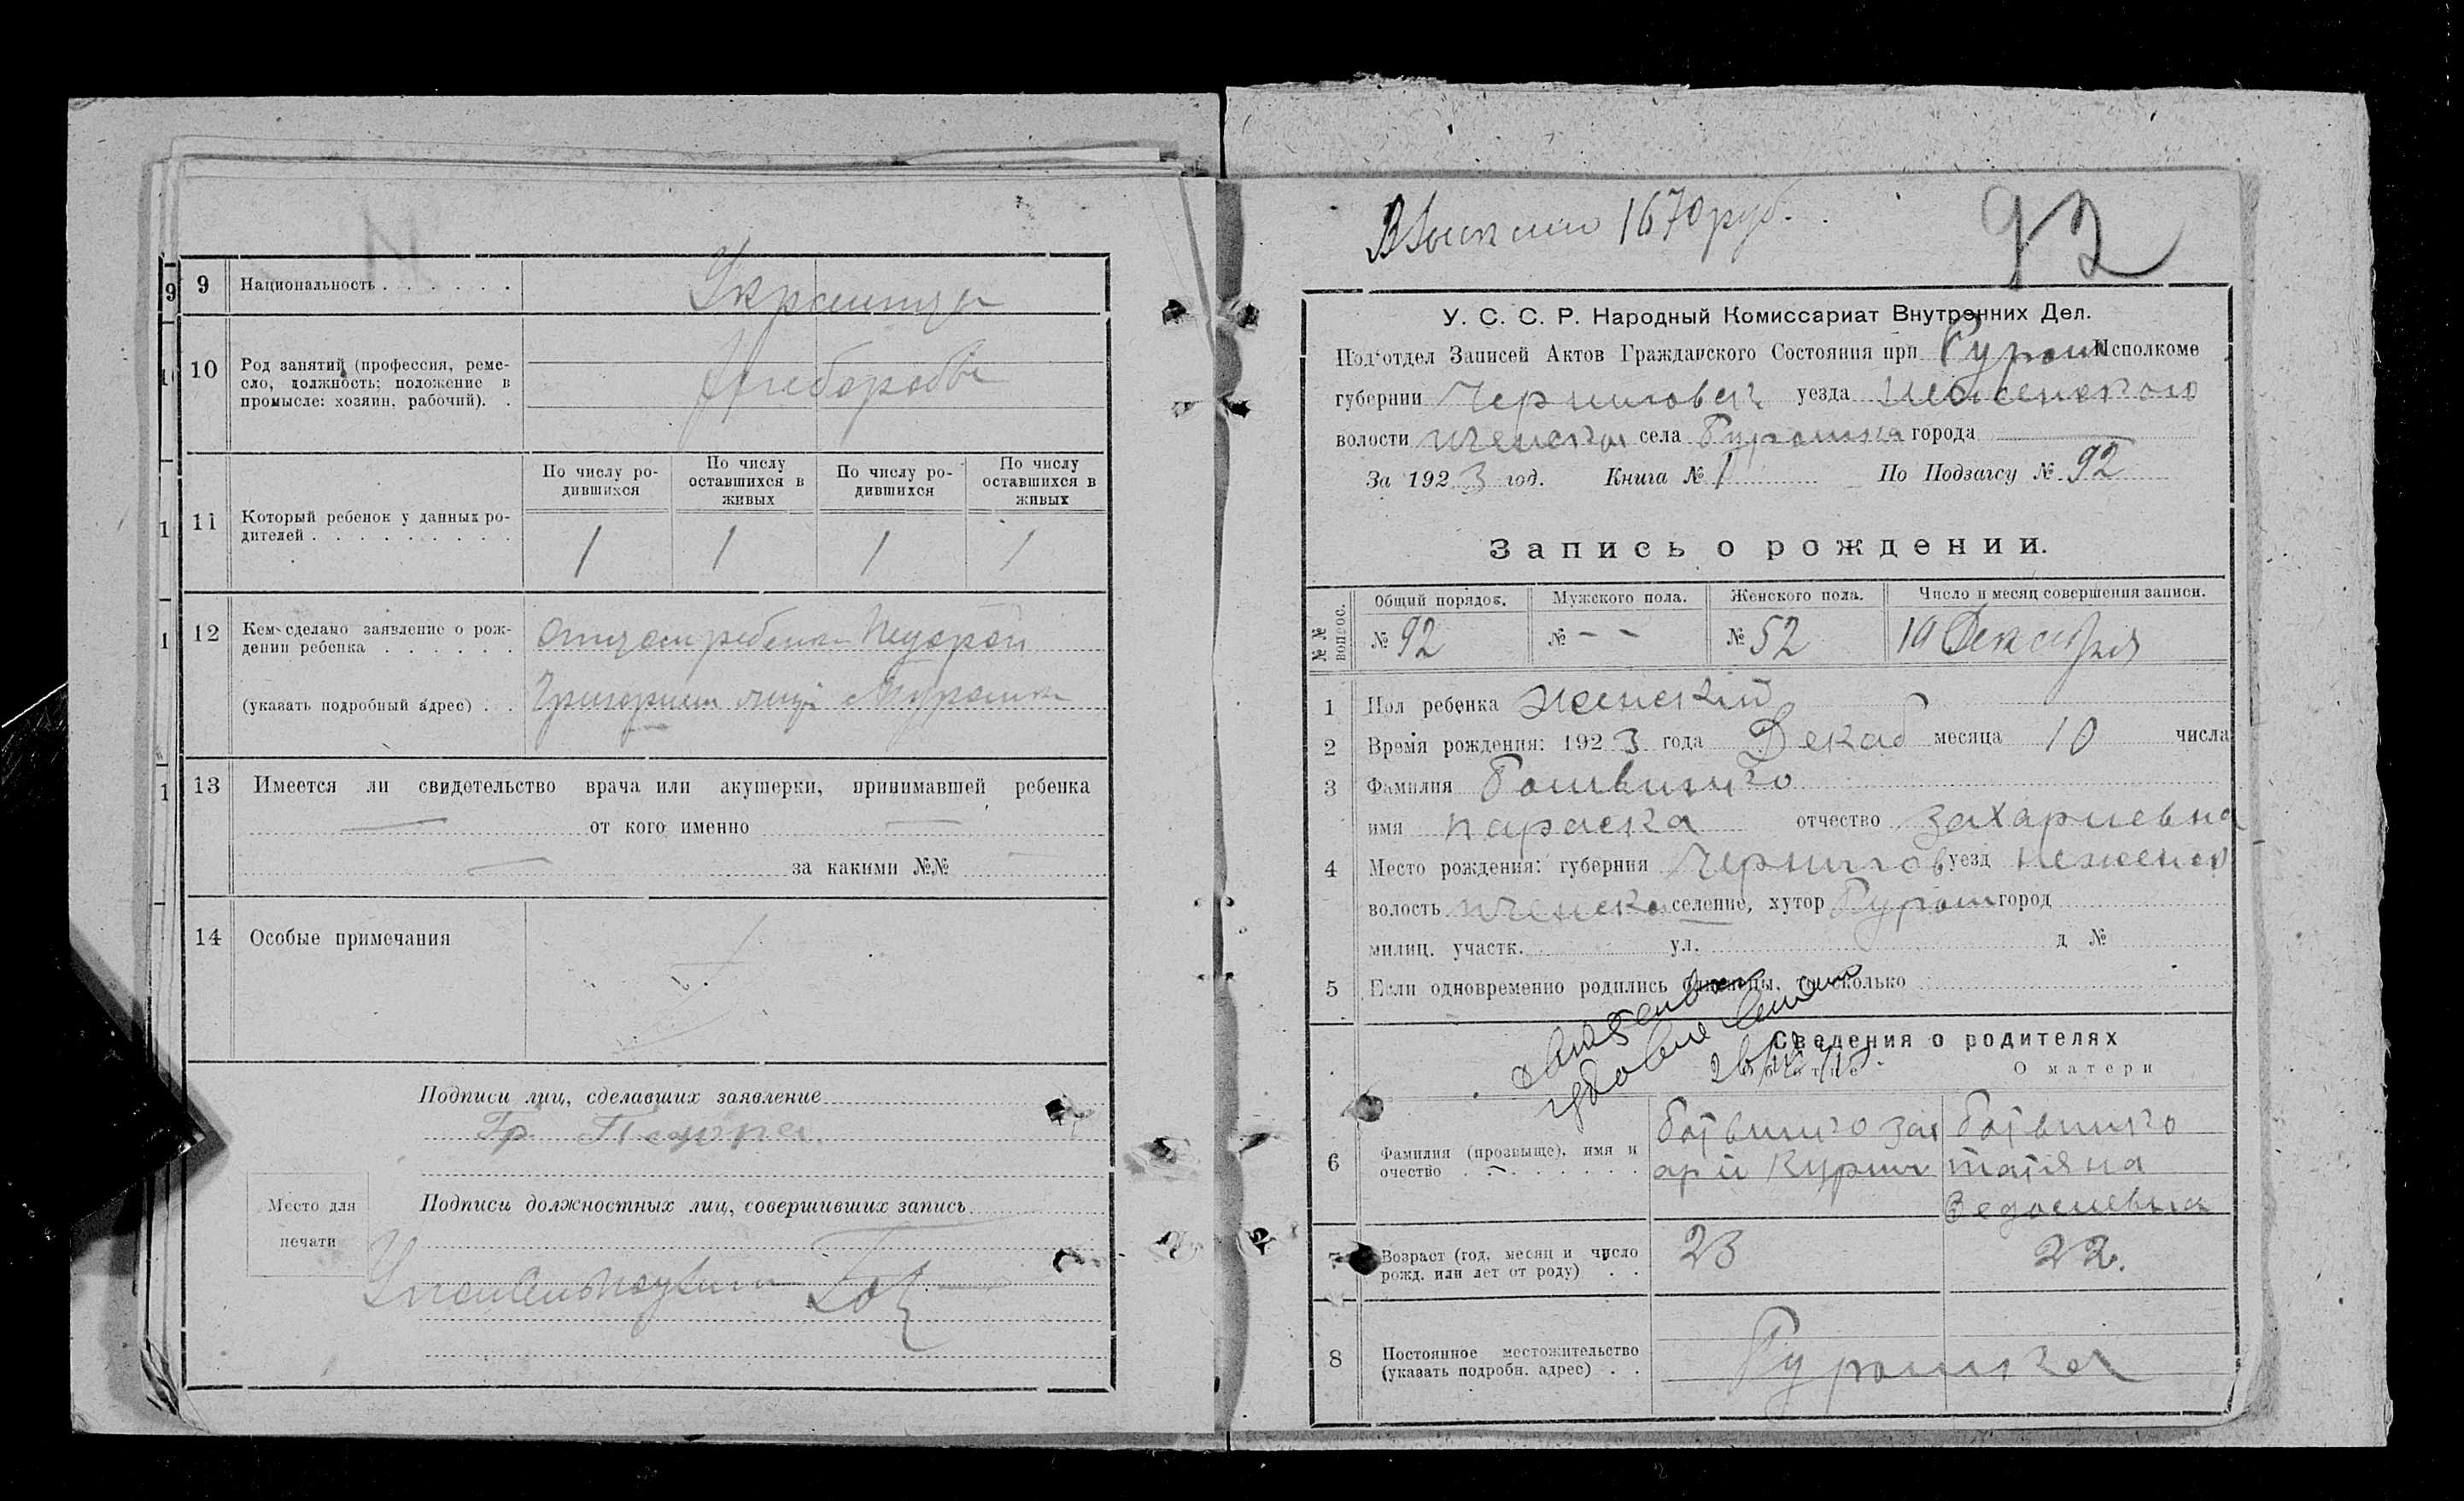 9
9 Национальность . . . . . . Украинцы
10 Род занятий (профессия, реме-
сло, должность; положение в
промысле: хозяин, рабочий). . Хлеборобы
11 Который ребенок у данных ро-
дителей . . . . . . . . . .
По числу ро-
дившихся
По числу
оставшихся в
живых
По числу ро-
дившихся
По числу
оставшихся в
живых
1 1 1 1
12 Кем сделано заявление о рож-
дении ребенка . . . . . . Отцом ребенка
(указать подробный адрес) . . Григорием
13 Имеется ли свидетельство врача или акушерки, принимавшей ребенка
— от кого именно —
— за какими №№ —
14 Особые примечания
Подписи лиц, сделавших заявление
Гр.
Место для
печати
Подписи должностных лиц, совершивших запись
Взыскано 1670 руб.
92
У. С. С. Р. Народный Комиссариат Внутренних Дел.
Под'отдел Записей Актов Гражданского Состояния при Исполкоме
губернии Чернигов уезда Неженского
волости Иченска села города —
За 1923 год. Книга № 1 По Подзагсу № 92
Запись о рождении.
№№ вопрос.
Общий порядок. Мужского пола. Женского пола. Число и месяц совершения записи.
№ 92 № - - № 52 19 Декабря
1 Пол ребенка женский
2 Время рождения: 1923 года Декаб месяца 10 числа
3 Фамилия Ботвинко
имя Параска отчество Захариевна
4 Место рождения: губерния Чернигов уезд Неженск
волость Иченска селение, хутор город
милиц. участк. ул. д №
5 Если одновременно родились близнецы, то сколько
Сведения о родителях
Об отце О матери
6 Фамилия (прозвище), имя и
очество . . . . . . . .
Ботвинко Зах
арий
Ботвинко
Татяна
Федосиевна
7 Возраст (год, месяц и число
рожд. или лет от роду) . . 23 22.
8 Постоянное местожительство
(указать подробн. адрес) . .